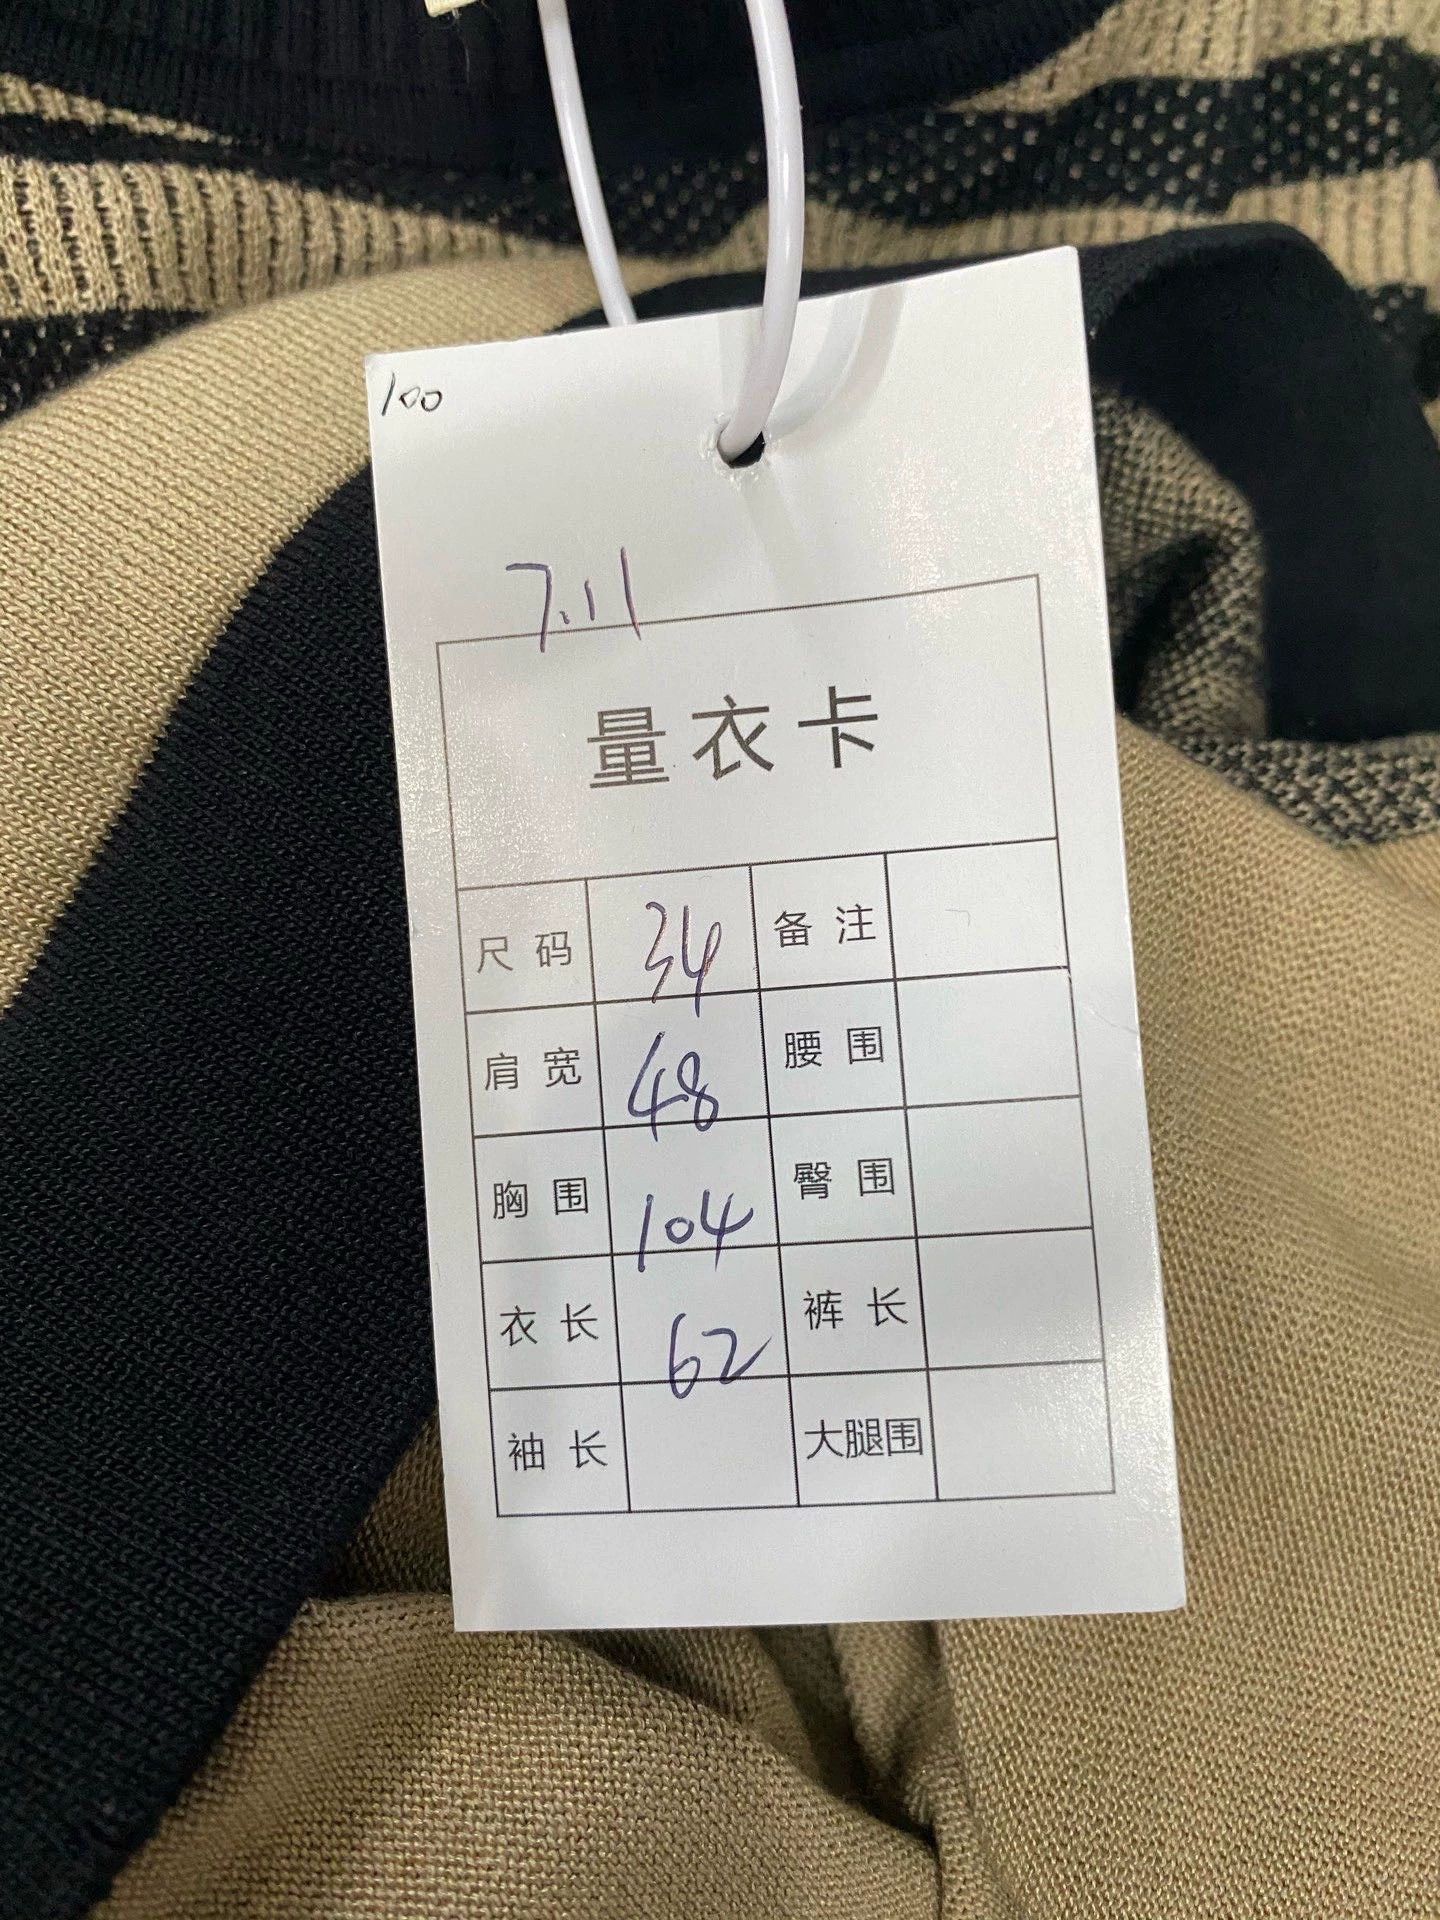 100
7.11
量衣卡
尺码 34 备注
肩宽 48 腰围
胸围 104 臀围
衣长 62 裤长
袖长 大腿围